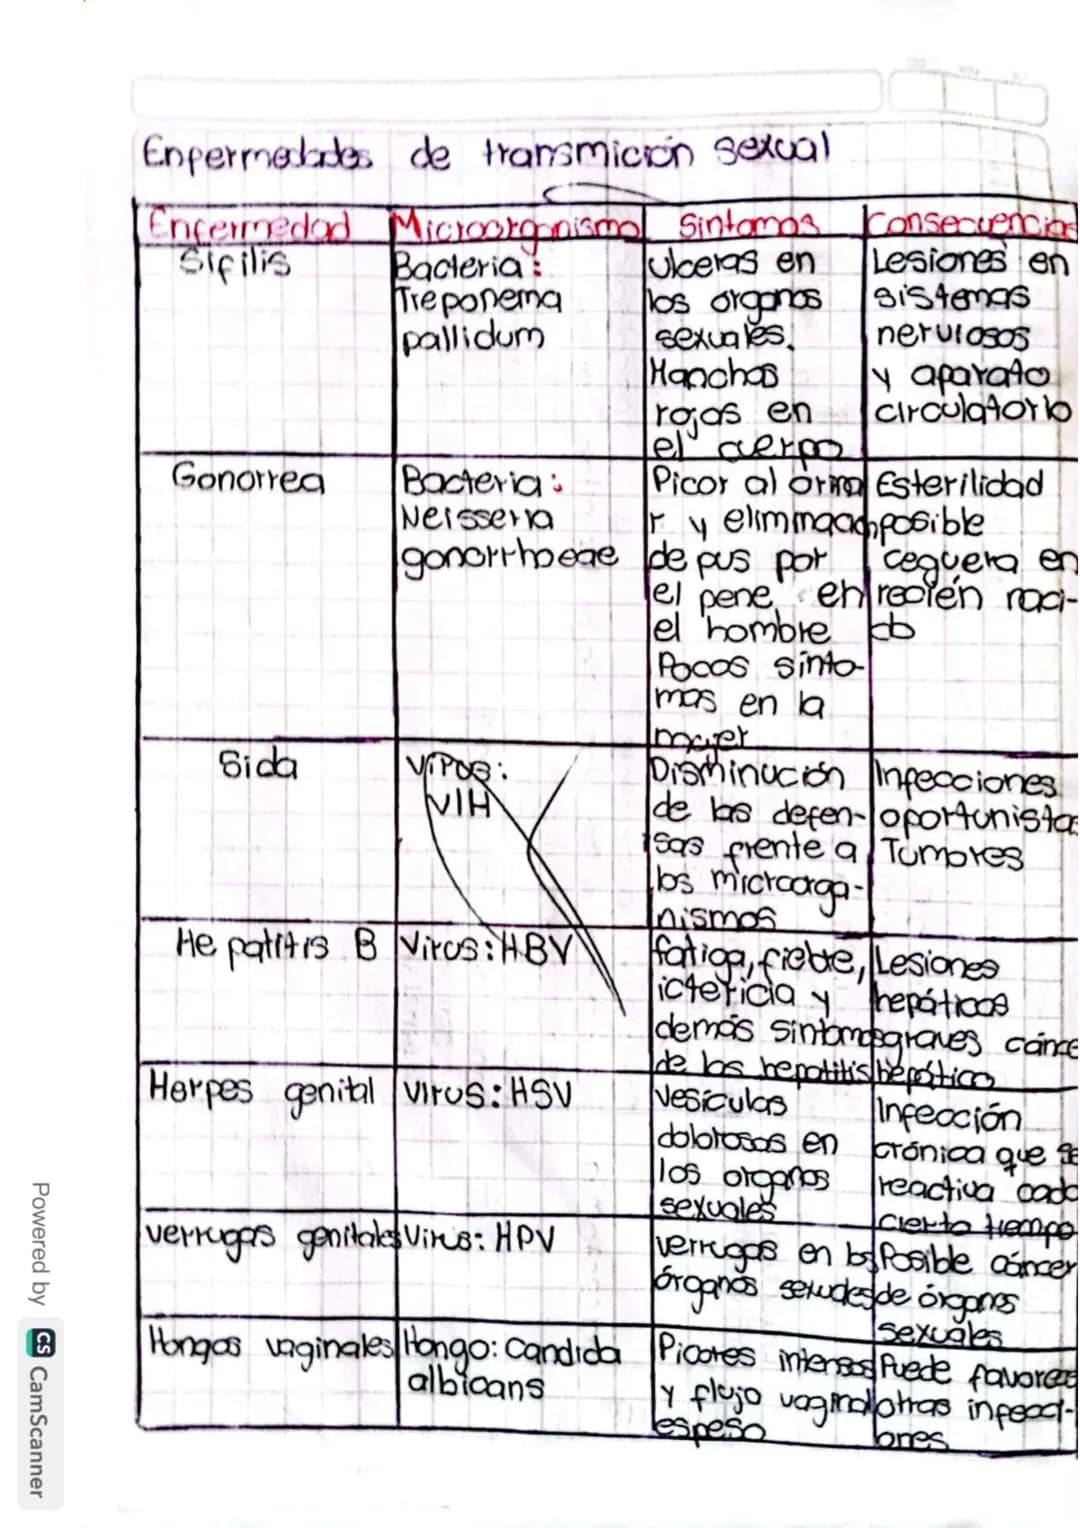 Enfermedades de transmición sexual
Enfermedad Microorganismo Sintomas Consecuencias
Sifilis
Bacteria:
Treponema
pallidum
ulceras en
los organos
sexuales.
Manchas
rojas en
el cuerpo
Lesiones en
sistemas
nerviosos
y aparato
circulatorio
Gonorrea
Bacteria:
Neisseria
gonorrhoeae
Picor al orina
r y eliminación
de pus por
el pene en
el hombre
Pocos sinto-
mas en la
mujer
Esterilidad
posible
ceguera en
recién naci-
do
Sida
Virus:
VIH
Disminución
de las defen-
sas frente a
los microorga-
nismos
Infecciones
oportunistas
Tumores
Hepatitis B
Virus: HBV
fatiga, fiebre,
ictericia y
demás sintomas
de las hepatitis
Lesiones
hepáticas
graves cánce
hepático
Herpes genital
Virus: HSV
Vesiculas
dolorosas en
los organos
sexuales
Infección
crónica que se
reactiva cada
cierto tiempo
verrugas genitales
Virus: HPV
verrugas en los
órganos sexuales
Posible cáncer
de órganos
sexuales
Hongos vaginales
Hongo: Candida
albicans
Picores intensos
y flujo vaginal
espeso
Puede favorece
otras infecci-
ones
Powered by CS CamScanner